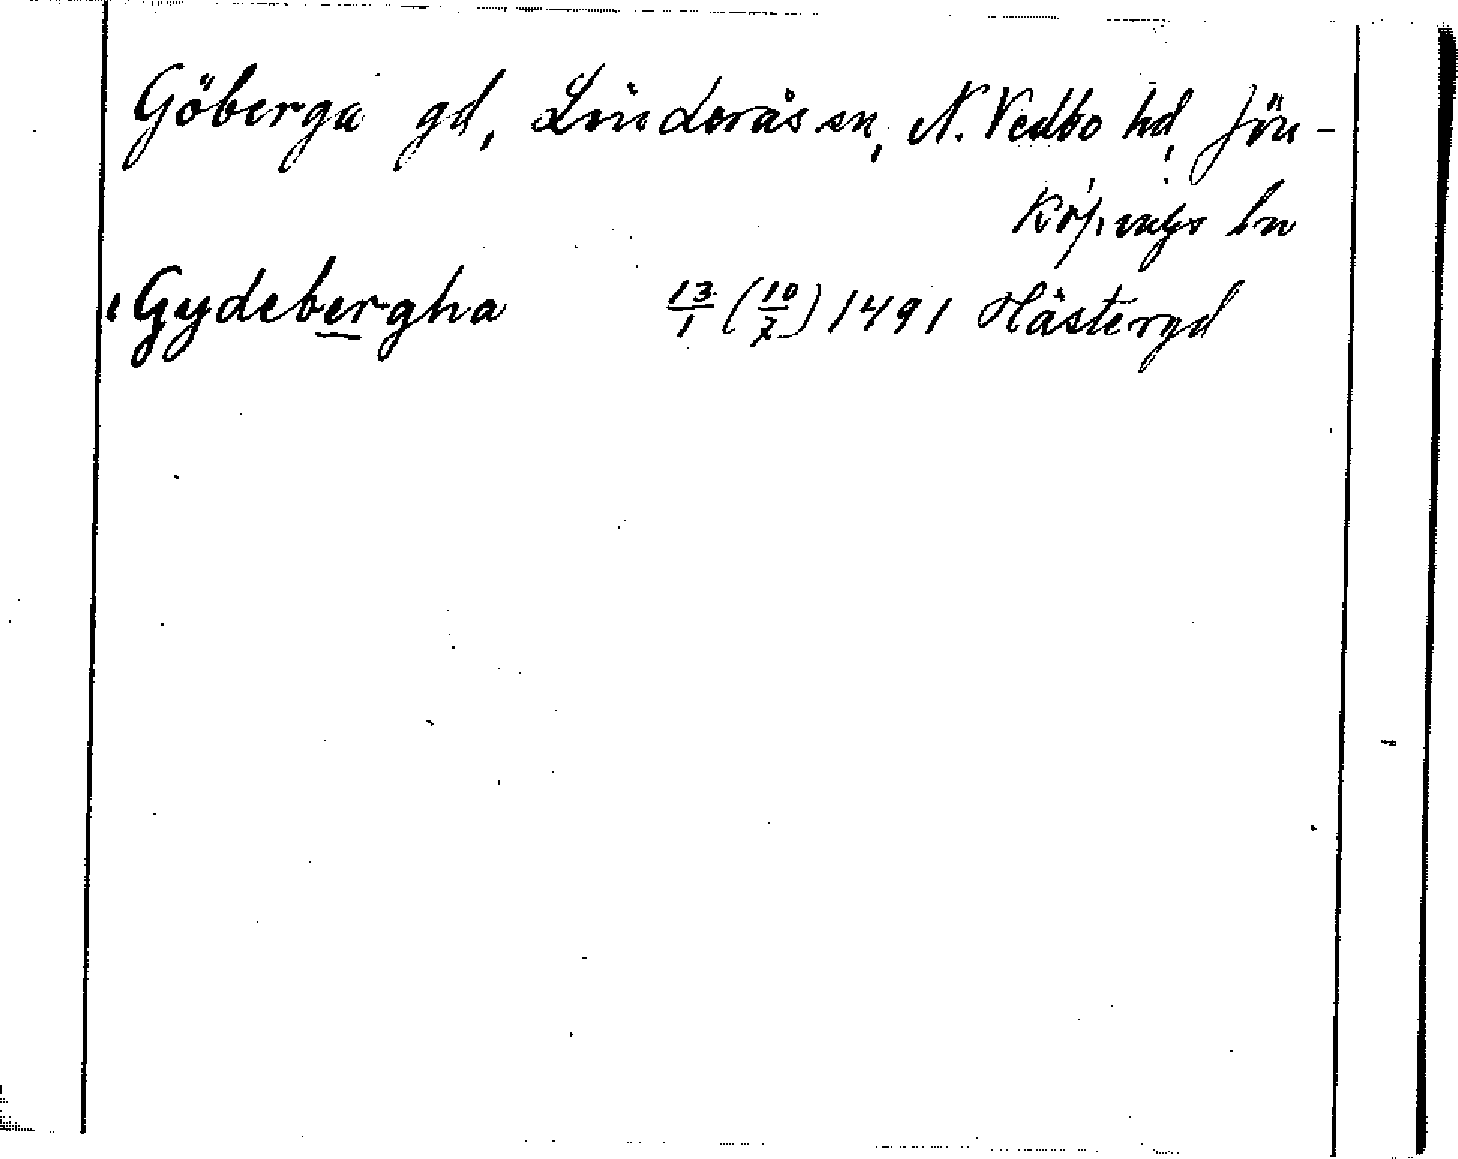 Göberga gd, Linderås sn, N. Vedbo hd, Jön-
köpings ln
Gydebergha 13/1 (10/7) 1491 Hästergd